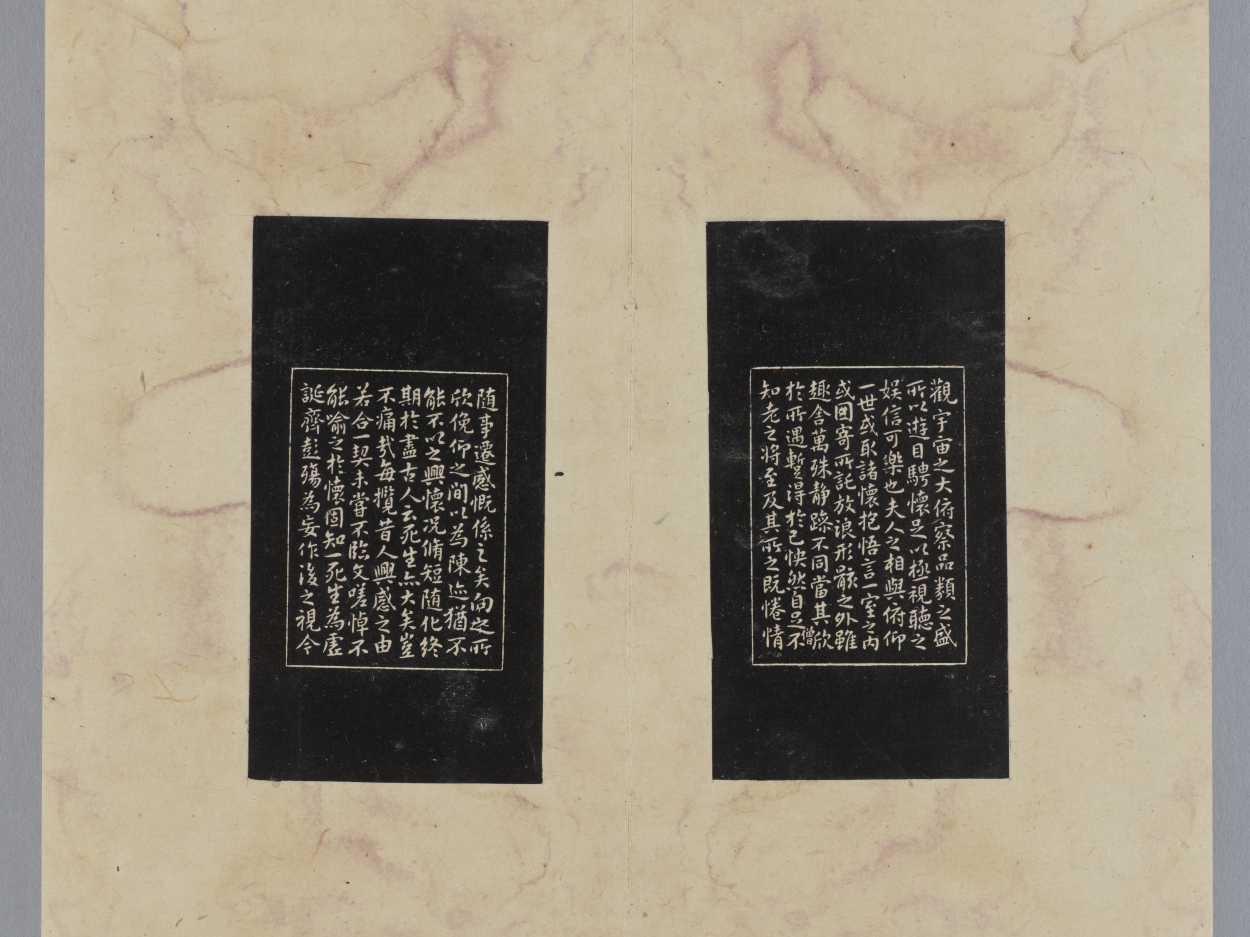 觀宇宙之大俯察品類之盛
所以遊目騁懷足以極視聽之
娛信可樂也夫人之相與俯仰
一世或取諸懷抱悟言一室之內
或因寄所託放浪形骸之外雖
趣舍萬殊静躁不同當其欣
僧
於所遇蹔得於己怏然自足不
知老之將至及其所之既惓情
隨事遷感慨係之矣向之所
欣俛仰之間以為陳迹猶不
能不以之興懷況脩短隨化終
期於盡古人云死生亦大矣豈
不痛哉每攬昔人興感之由
若合一契未嘗不臨文嗟悼不
能喻之於懷固知死生為虛
誕齊彭殤為妄作後之視今